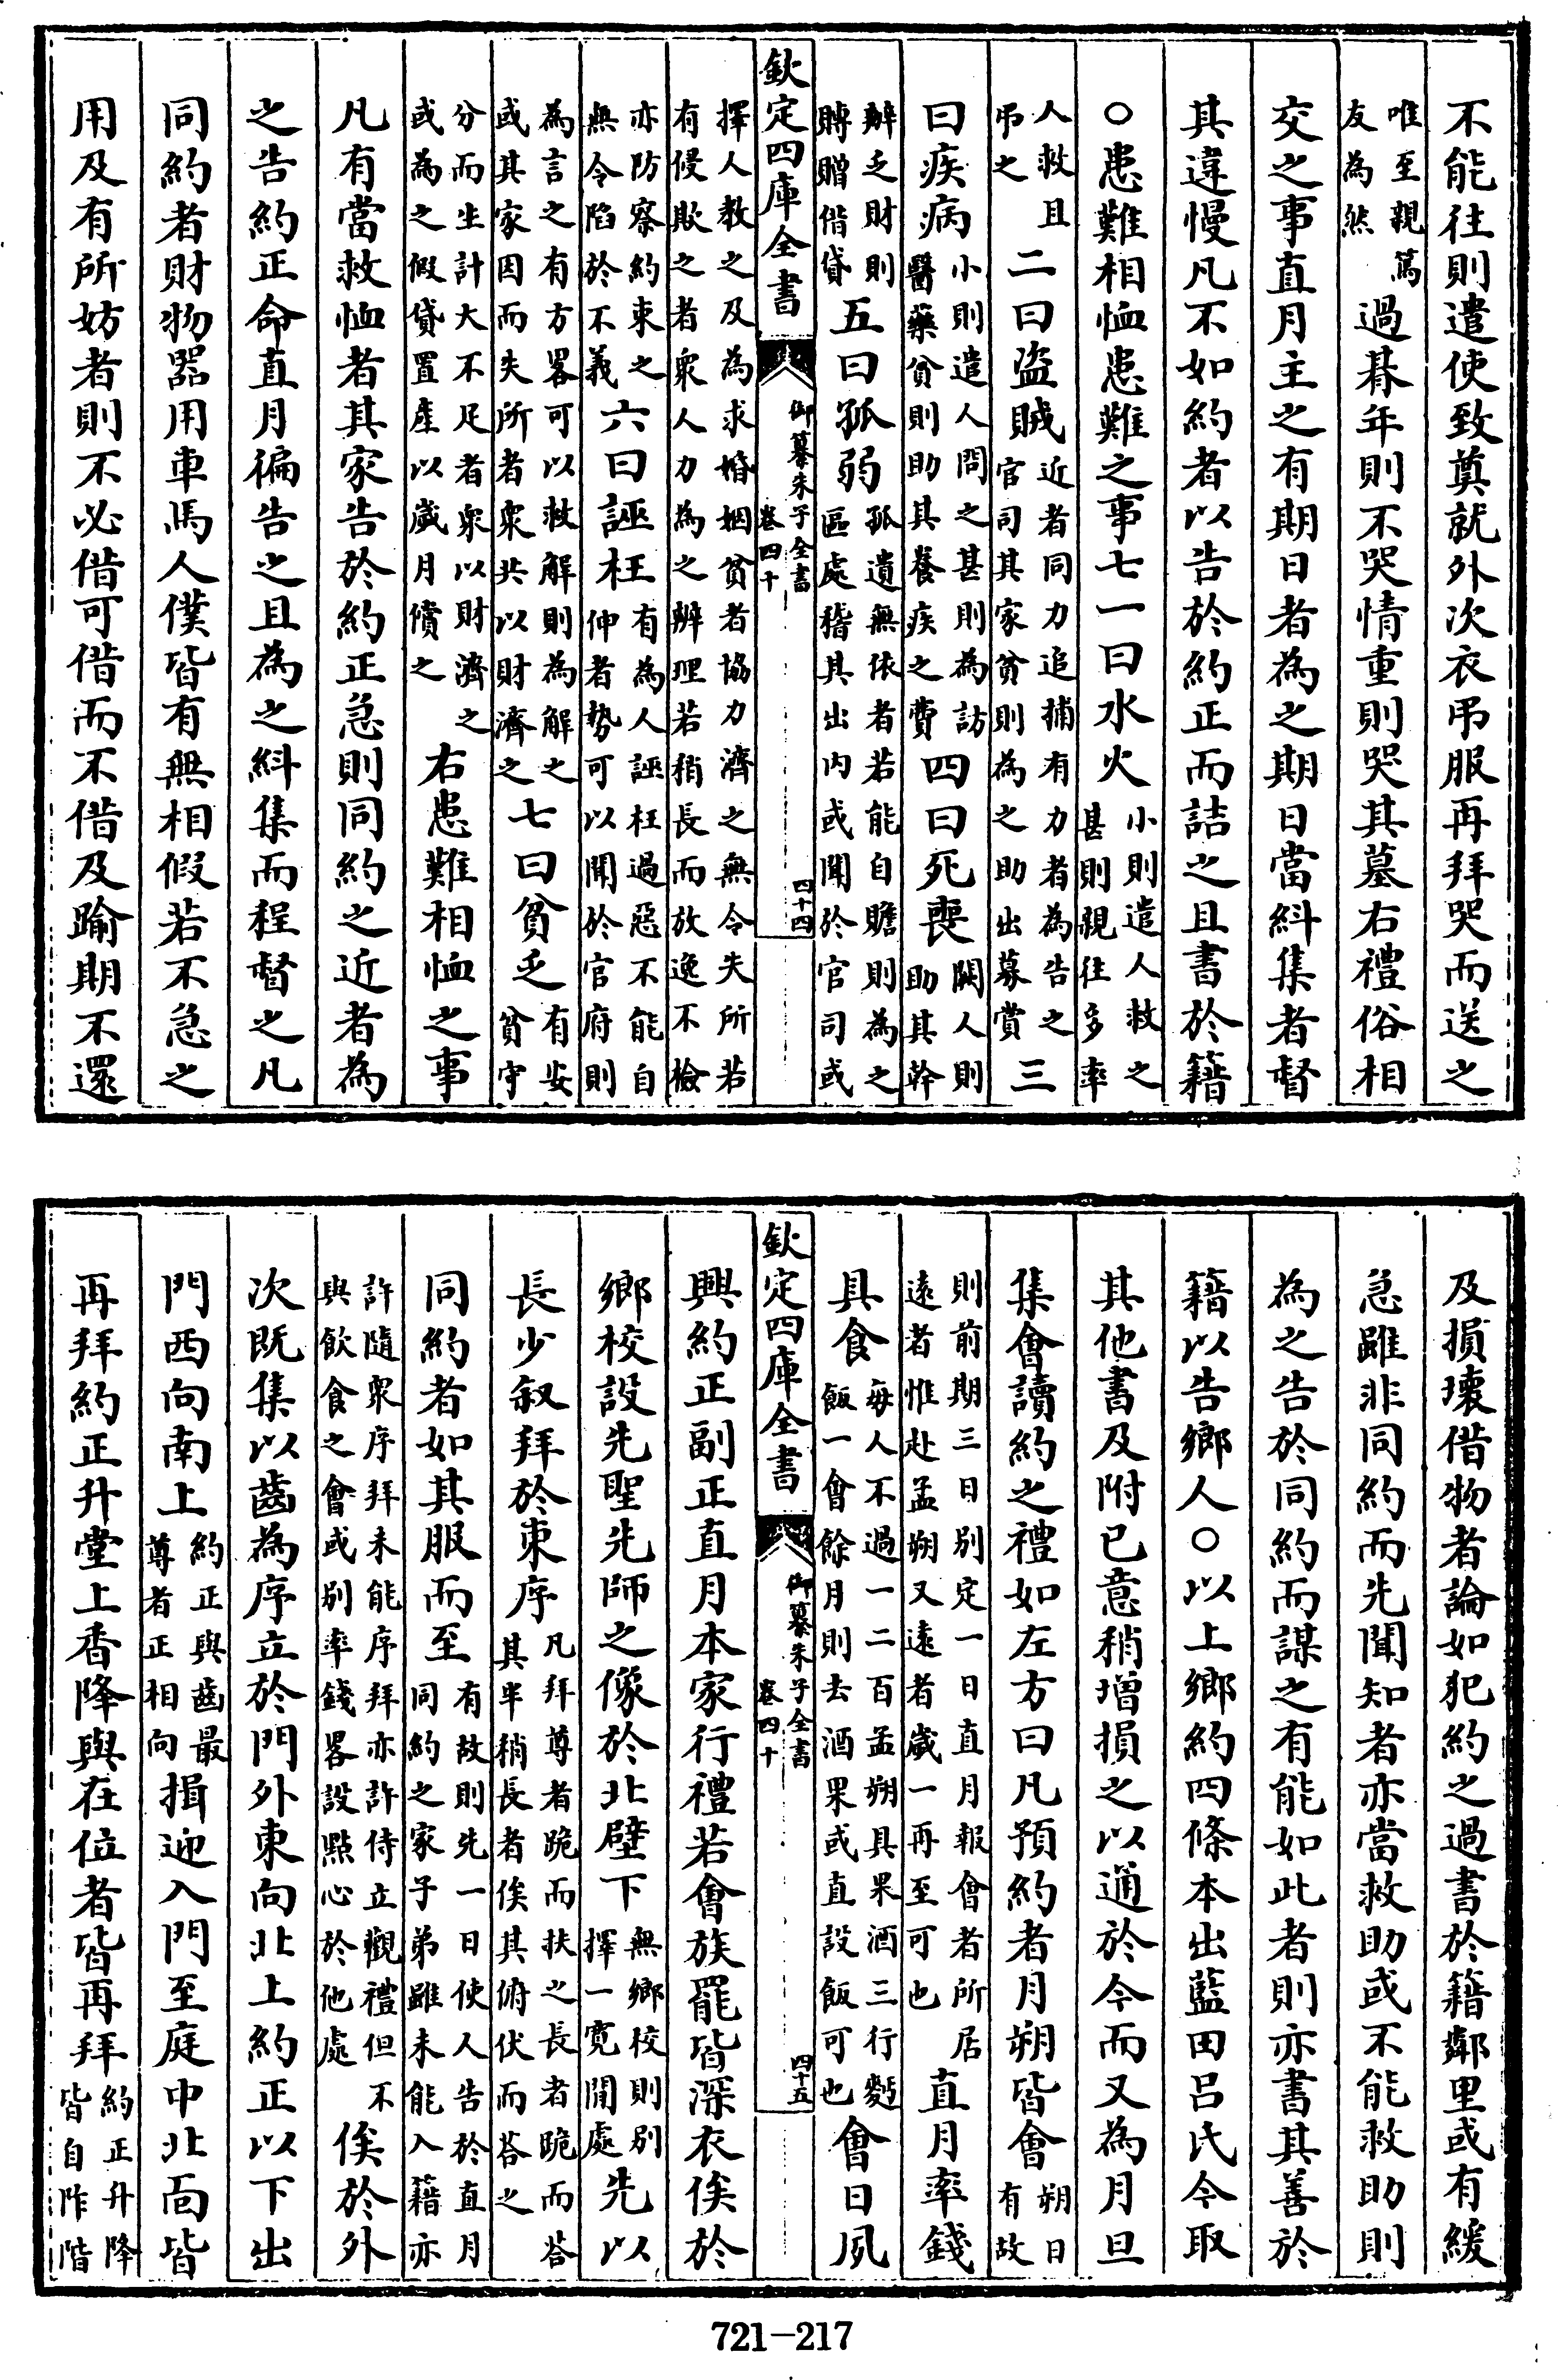 不能往則遣使致奠就外次衣吊服再拜哭而送之
唯至親篤友為然過朞年則不哭情重則哭其墓右禮俗相
交之事直月主之有期日者為之期日當糾集者督
其違慢凡不如約者以告於約正而詰之且書於籍
○患難相恤患難之事七一曰水火小則遣人救之甚則親往多率
人救且吊之二曰盜賊近者同力追捕有力者為告之官司其家貧則為之助出募賞三
曰疾病小則遣人問之甚則為訪醫藥貧則助其養疾之費四曰死喪闕人則助其幹
辦乏財則賻贈借貸五曰孤弱孤遺無依者若能自贍則為之區處稽其出內或聞於官司或
欽定四庫全書
御纂朱子全書
卷四十
四十四
擇人教之及為求婚姻貧者協力濟之無令失所若有侵欺之者衆人力為之辦理若稍長而放逸不檢
亦防察約束之無令陷於不義六曰誣枉有為人誣枉過惡不能自伸者勢可以聞於官府則
為言之有方畧可以救解則為解之或其家因而失所者衆共以財濟之七曰貧乏有安貧守
分而生計大不足者衆以財濟之或為之假貸置產以歲月償之右患難相恤之事
凡有當救恤者其家告於約正急則同約之近者為
之告約正命直月徧告之且為之糾集而程督之凡
同約者財物器用車馬人僕皆有無相假若不急之
用及有所妨者則不必借可借而不借及踰期不還
及損壞借物者論如犯約之過書於籍鄰里或有緩
急雖非同約而先聞知者亦當救助或不能救助則
為之告於同約而謀之有能如此者則亦書其善於
籍以告鄉人○以上鄉約四條本出藍田呂氏今取
其他書及附已意稍增損之以通於今而又為月旦
集會讀約之禮如左方曰凡預約者月朔皆會朔日有故
則前期三日別定一日直月報會者所居遠者惟赴孟朔又遠者歲一再至可也直月率錢
具食每人不過一二百孟朔具果酒三行麫飯一會餘月則去酒果或直設飯可也會日夙
欽定四庫全書
御纂朱子全書
卷四十
四十五
興約正副正直月本家行禮若會族罷皆深衣俟於
鄉校設先聖先師之像於北壁下無鄉校則別擇一寬閒處先以
長少叙拜於東序凡拜尊者跪而扶之長者跪而答其半稍長者俟其俯伏而荅之
同約者如其服而至有故則先一日使人告於直月同約之家子弟雖未能入籍亦
許隨衆序拜未能序拜亦許侍立觀禮但不與飲食之會或別率錢畧設點心於他處俟於外
次既集以齒為序立於門外東向北上約正以下出
門西向南上約正與齒最尊者正相向揖迎入門至庭中北面皆
再拜約正升堂上香降與在位者皆再拜約正升降皆自阼階
721—217